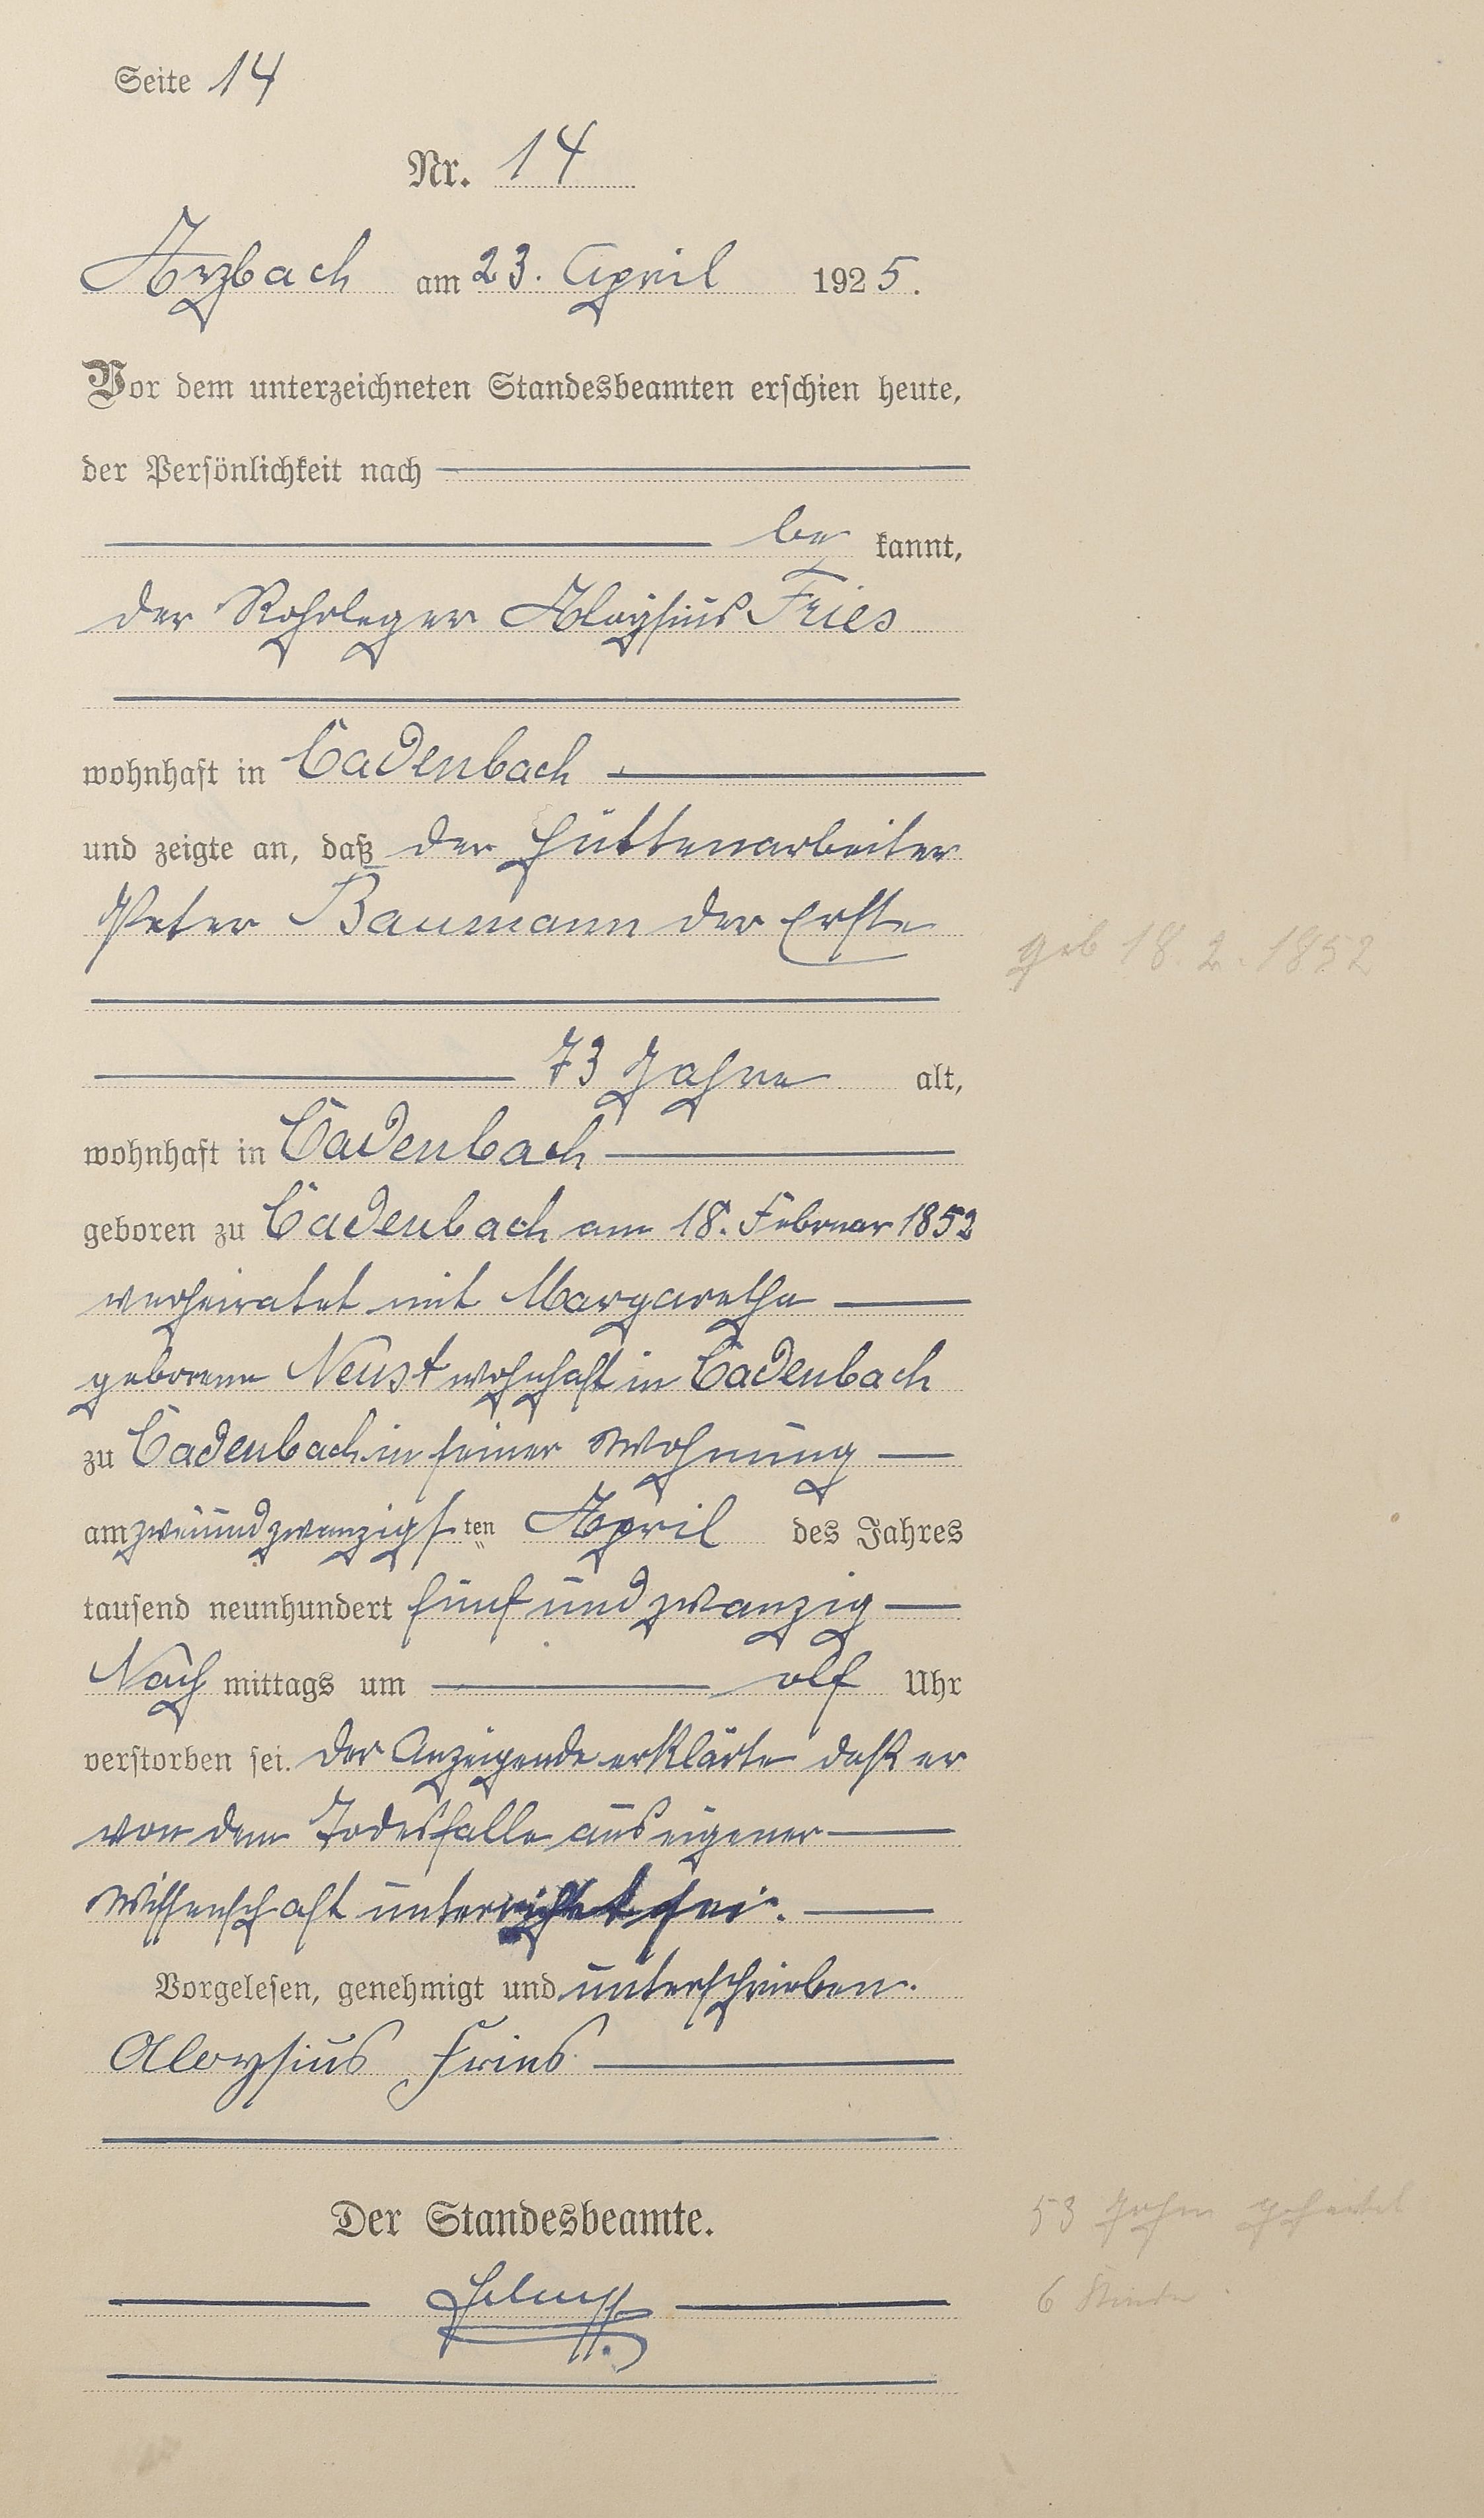 Seite 14
Nr. 14
Arzbach am 23. April 1925.
Vor dem unterzeichneten Standesbeamten erschien heute,
der Persönlichkeit nach
be kannt,
der Rohrleger Aloysius Fries
wohnhaft in Cadenbach
und zeigte an, daß der Hüttenarbeiter
Peter Baumann der Erste
geb 18.2.1852
73 Jahre alt,
wohnhaft in Cadenbach
geboren zu Cadenbach am 18. Februar 1852
verheiratet mit Margaretha
geborene Neust wohnhaft in Cadenbach
zu Cadenbach in seiner Wohnung
am zweiundzwanzigsten April des Jahres
tausend neunhundert fünf und zwanzig
Nach mittags um elf Uhr
verstorben sei. Der Anzeigende erklärte daß er
von dem Todesfalle aus eigener
Wissenschaft unterrichtet sei.
Vorgelesen, genehmigt und unterschrieben.
Aloysius Fries
Der Standesbeamte.
53 Jahre
6 Kinder